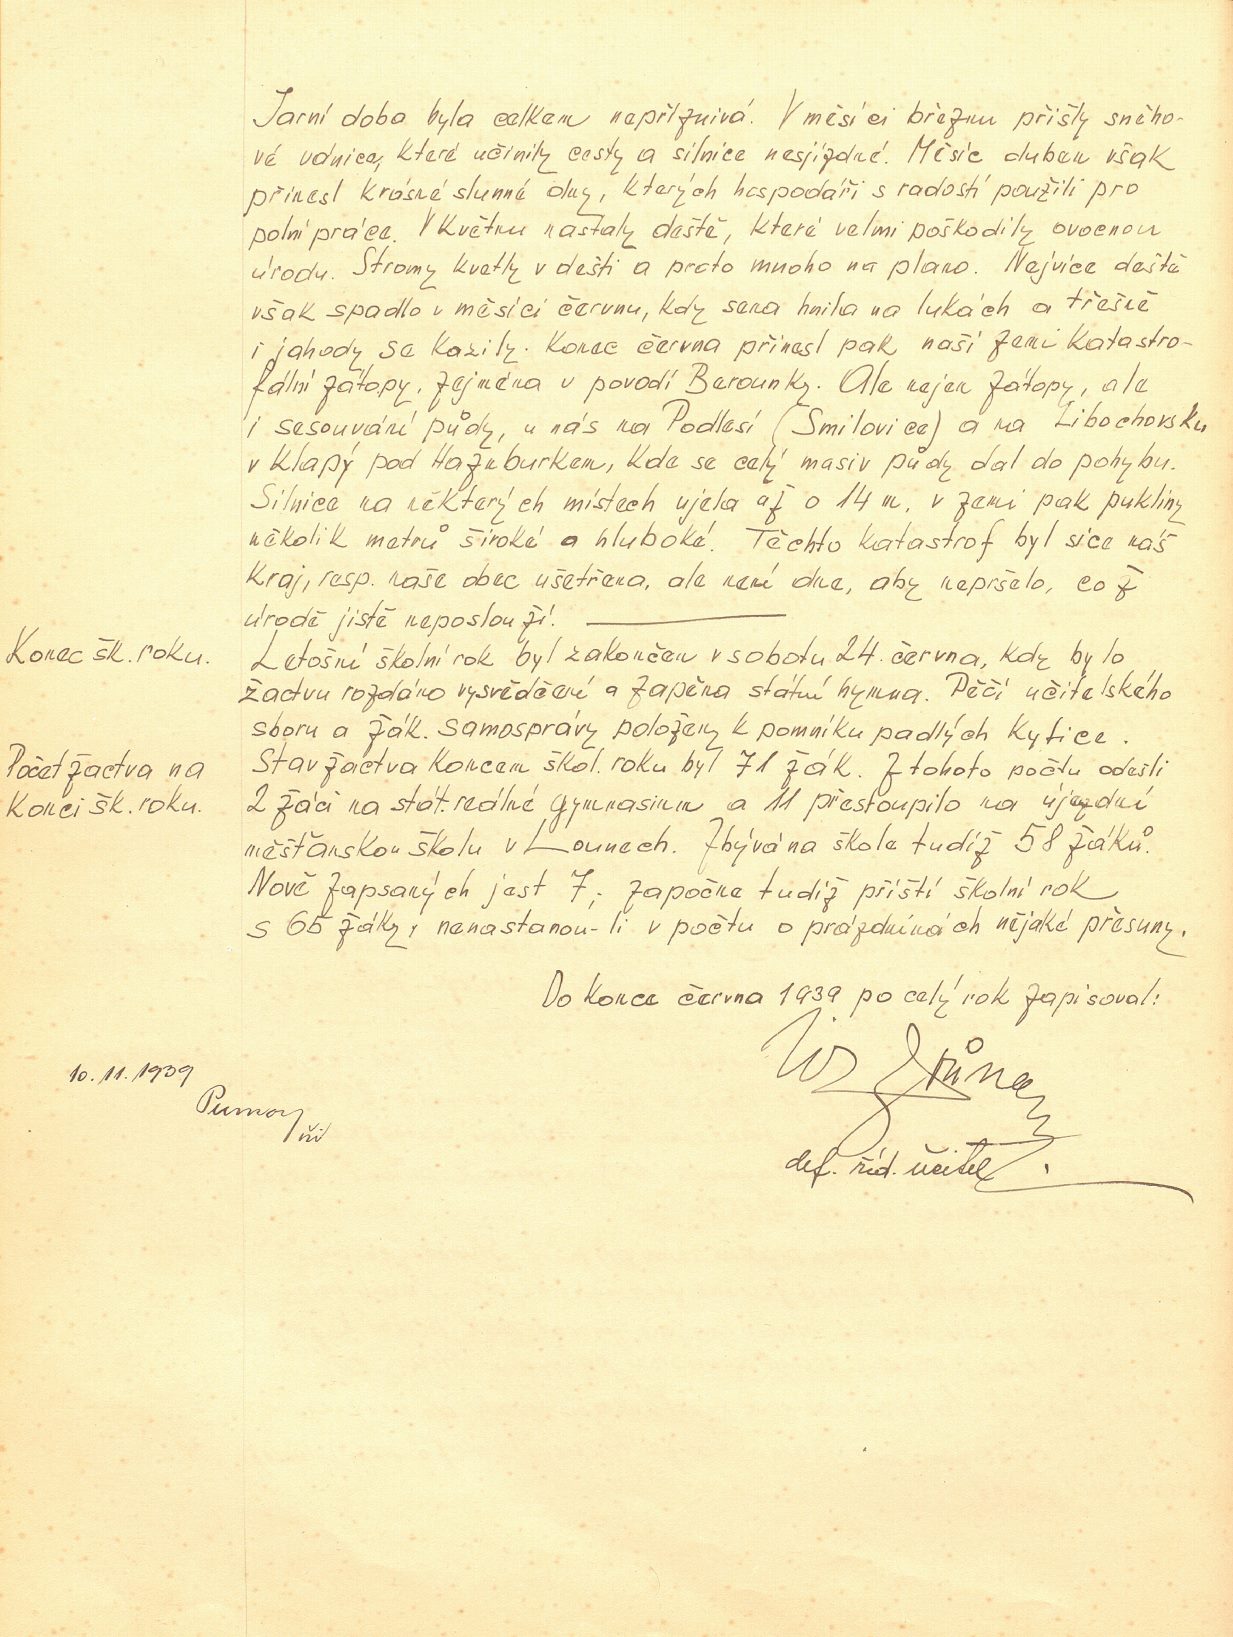 Jarní doba byla celkem nepříznivá. V měsíci březnu přišly sněho-
vé vánice, které učinily cesty a silnice nesjízdné. Měsíc duben však
přinesl krásné slunné dny, kterých hospodáři s radostí použili pro
polní práce. V květnu nastaly deště, které velmi poškodily ovocnou
úrodu. Stromy kvetly v dešti a proto mnoho na plano. Nejvíce deště
však spadlo v měsíci červnu, kdy sena hnila na lukách a třešně
i jahody se kazily. Konec června přinesl pak naší zemi katastro-
fální zátopy, zejména v povodí Berounky. Ale nejen zátopy, ale
i sesouvání půdy, u nás na Podlesí (Smilovice) a na Libochovsku
v Klapý pod Hazmburkem, kde se celý masiv půdy dal do pohybu.
Silnice na některých místech ujela až o 14 m, v zemi pak pukliny
několik metrů široké a hluboké. Těchto katastrof byl sice náš
kraj, resp. naše obec ušetřena, ale není dne, aby nepršelo, což
úrodě jistě neposlouží.
Konec šk. roku.
Letošní školní rok byl zakončen v sobotu 24. června, kdy bylo
žactvu rozdáno vysvědčení a zapěna státní hymna. Péčí učitelského
sboru a žák. samosprávy položeny k pomníku padlých kytice.
Počet žactva na
konci šk. roku.
Stav žactva koncem škol. roku byl 71 žák. Z tohoto počtu odešli
2 žáci na stát. reálné gymnasium a 11 přestoupilo na újezdní
měšťanskou školu v Lounech. Zbývá na škole tudíž 58 žáků.
Nově zapsaných jest 7; započne tudíž příští školní rok
s 65 žáky, nenastanou-li v počtu o prázdninách nějaké přesuny.
Do konce června 1939 po celý rok zapisoval:
def. říd. učitel.
10. 11. 1939